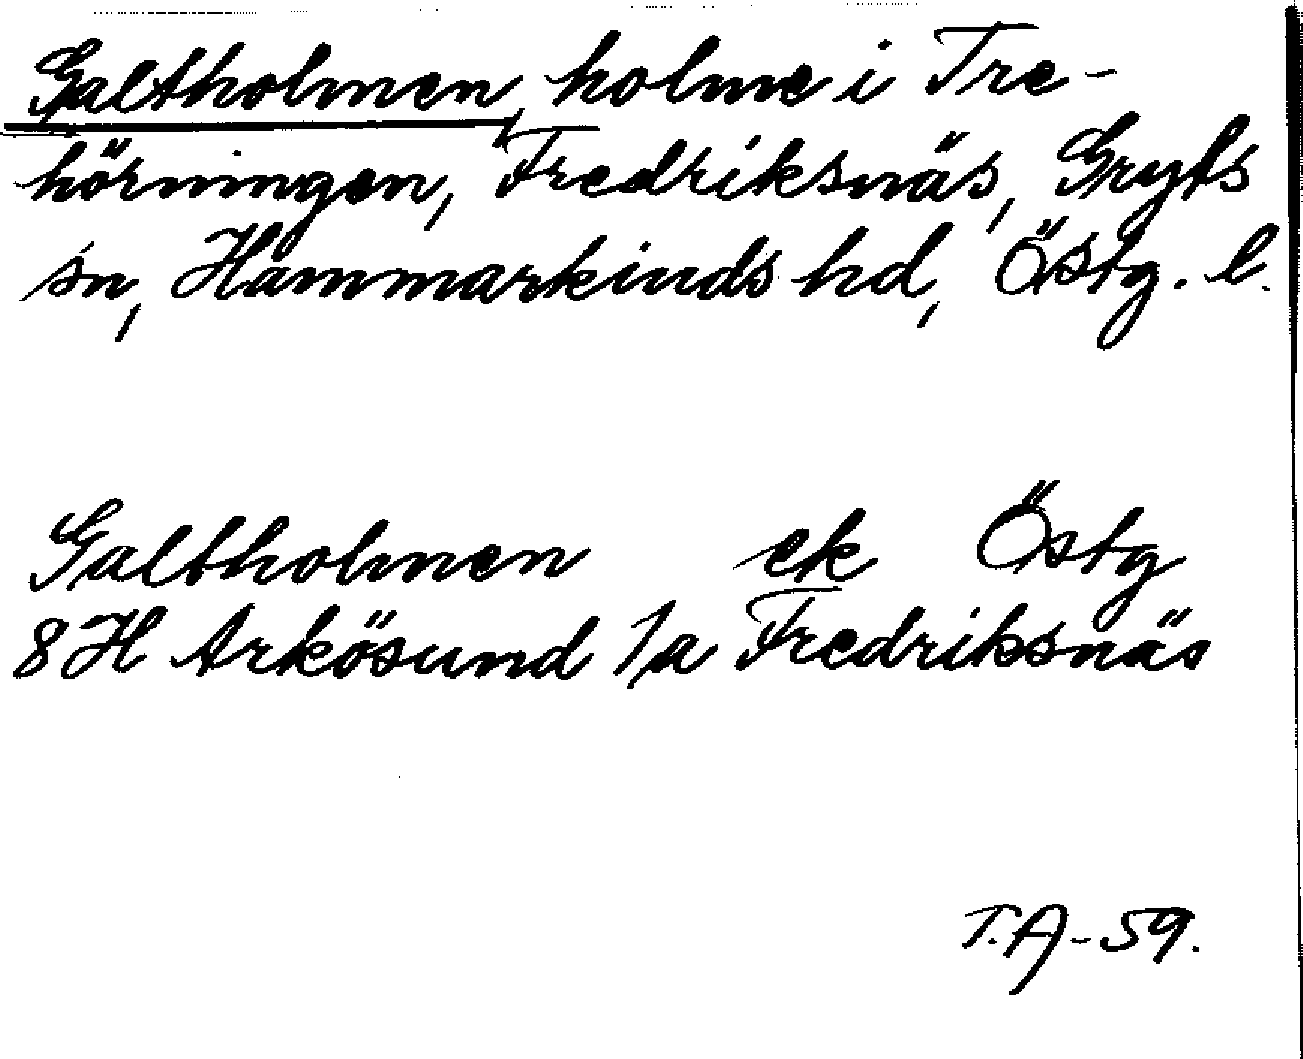 Galtholmen, holme i Tre-
hörningen, Fredriksnäs, Gryts
sn, Hammarkinds hd, Östg. l.
Galtholmen ek Östg
8H Arkösund 1/a Fredriksnäs
T.A-59.